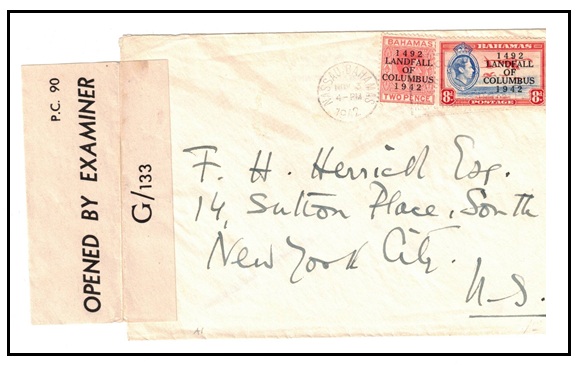 P.C. 90
OPENED BY EXAMINER
G/133
BAHAMAS
1492
LANDFALL
OF
COLUMBUS
1942
TWO PENCE
BAHAMAS
1492
LANDFALL
OF
COLUMBUS
1942
8d 8d
POSTAGE
NASSAU BAHAMAS
4-PM
F. H. Herrick Esq.
14, Sutton Place, South
New York City.
U.S.